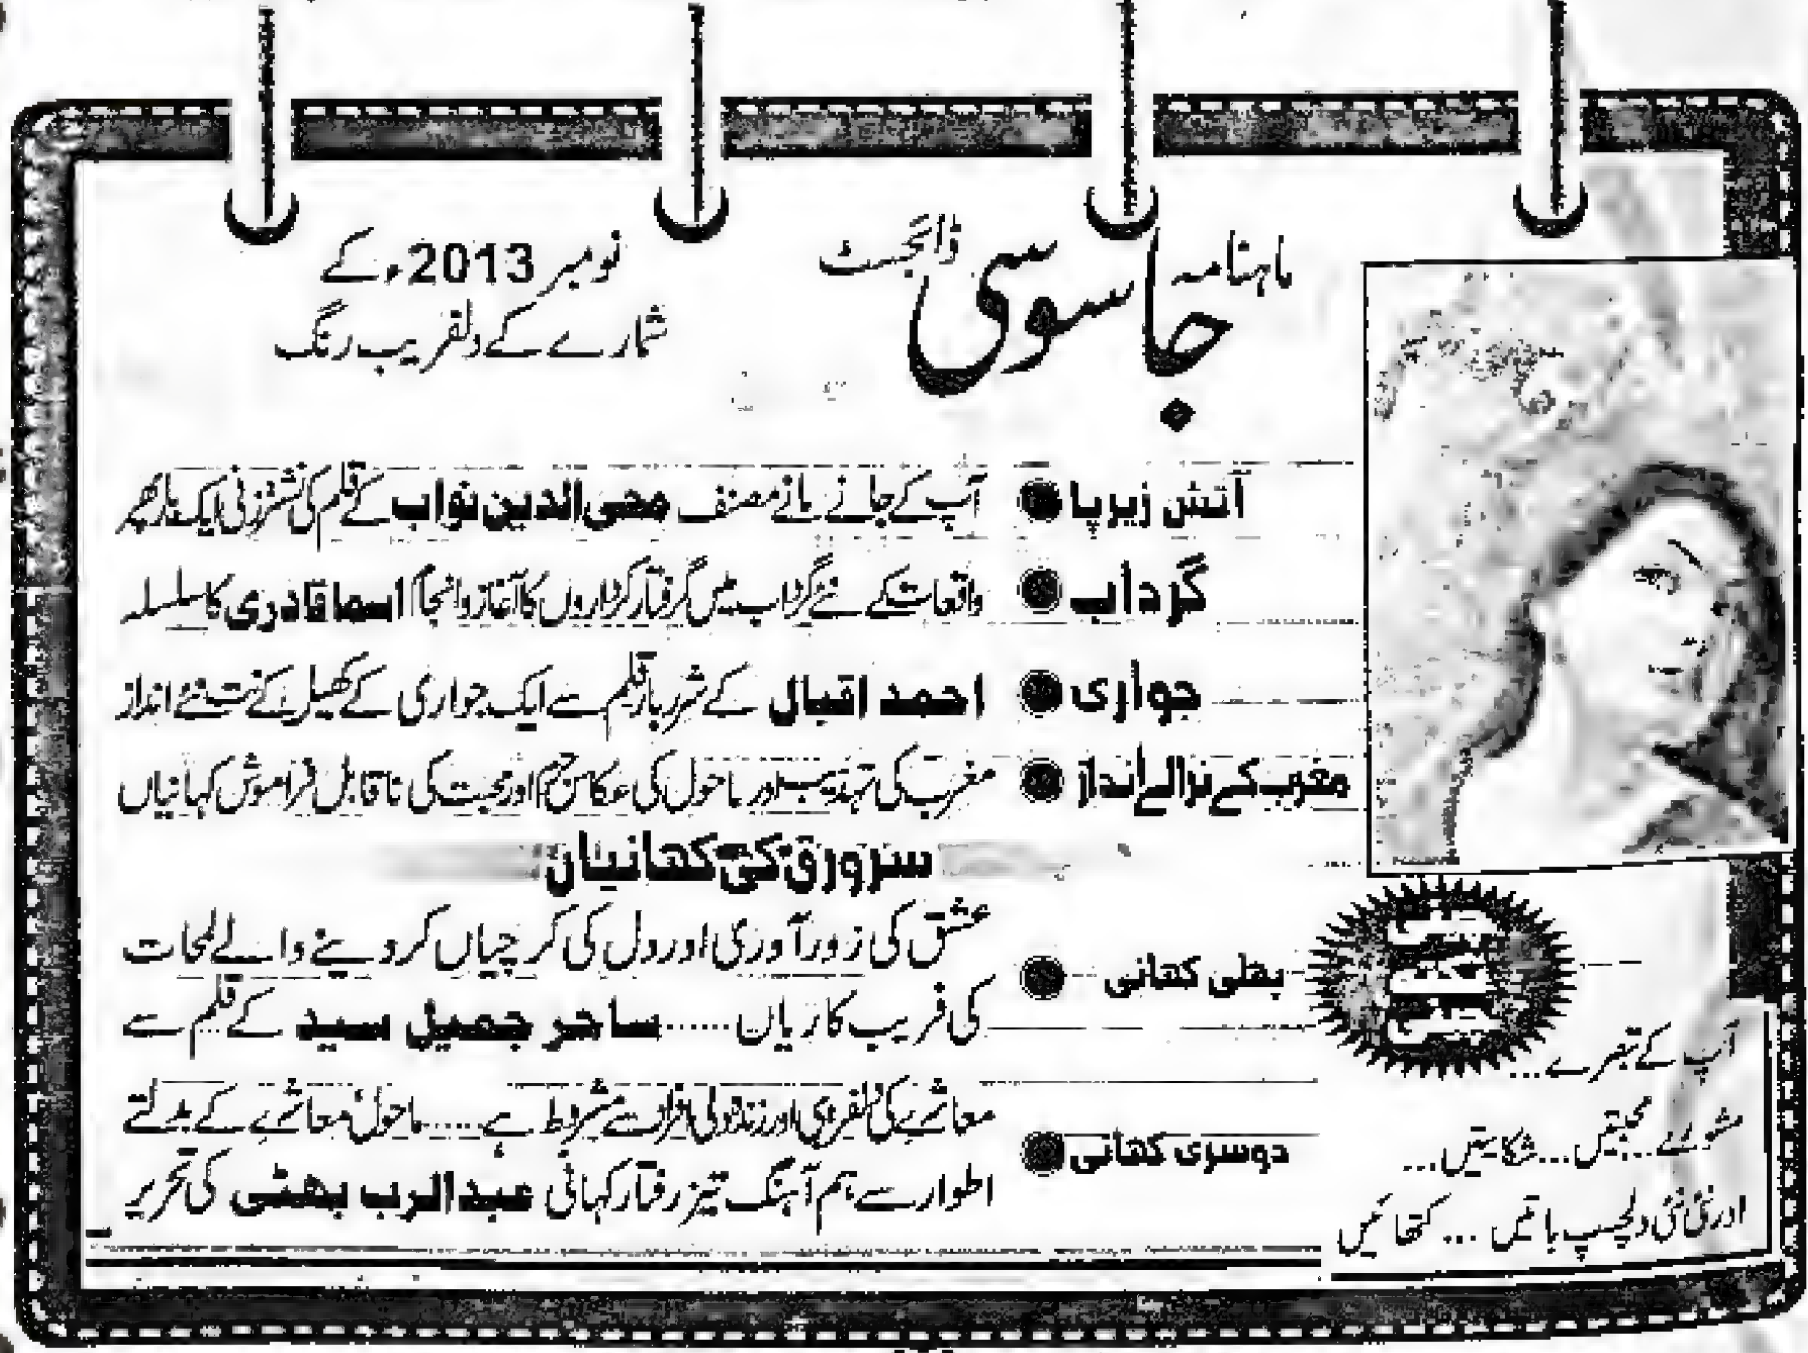 ماہنامہ جاسوسی ڈائجسٹ
نومبر 2013ء کے
شمارے کے دلفریب رنگ
آتش زیرپا ● آپ کے جانے مانے مصنف محی الدین نواب کے قلم کی نشتر زنی ایک بار پھر
گرداب ● واقعات کے نئے گرداب میں گرفتار کرداروں کا آغاز و انجام اسما قادری کا سلسلہ
جواری ● احمد اقبال کے شرر بار قلم سے ایک جواری کے کھیل کے نت نئے انداز
مغرب کے نرالے انداز ● مغرب کی تہذیب اور ماحول کی عکاس جرم اور محبت کی ناقابل فراموش کہانیاں
سرورق کی کہانیاں
پہلی کہانی ● عشق کی زور آوری اور دل کی کرچیاں کر دینے والے لمحات
کی فریب کاریاں ...... ساحر جمیل سید کے قلم سے
دوسری کہانی ● معاشرے کی اور افراد سے مشروط ہے ..... ماحول، معاشرے کے بدلتے
اطوار سے ہم آہنگ تیز رفتار کہانی عبدالرب بھٹی کی تحریر
آپ کے تبصرے ...
مشورے ... محبتیں ... شکایتیں ...
اور نئی نئی دلچسپ باتیں ... کتھائیں